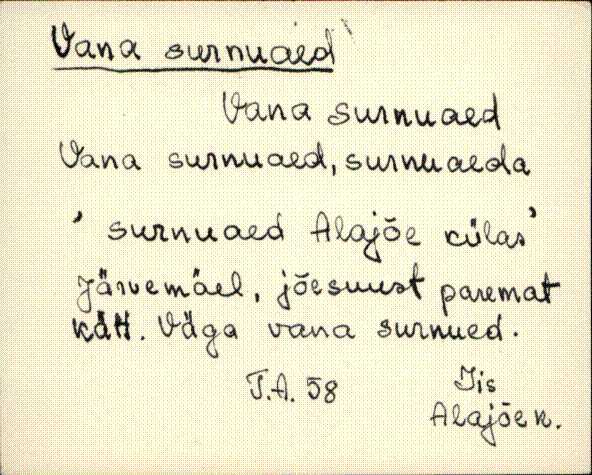 Vana surnuaed
Vana surnuaed
Vana surnuaed, surnuaeda
' surnuaed Alajõe külas'
Järvemäel, jõesuust paremat
kätt. Väga vana surnued.
T.A. 58
Iis
Alajõe k.